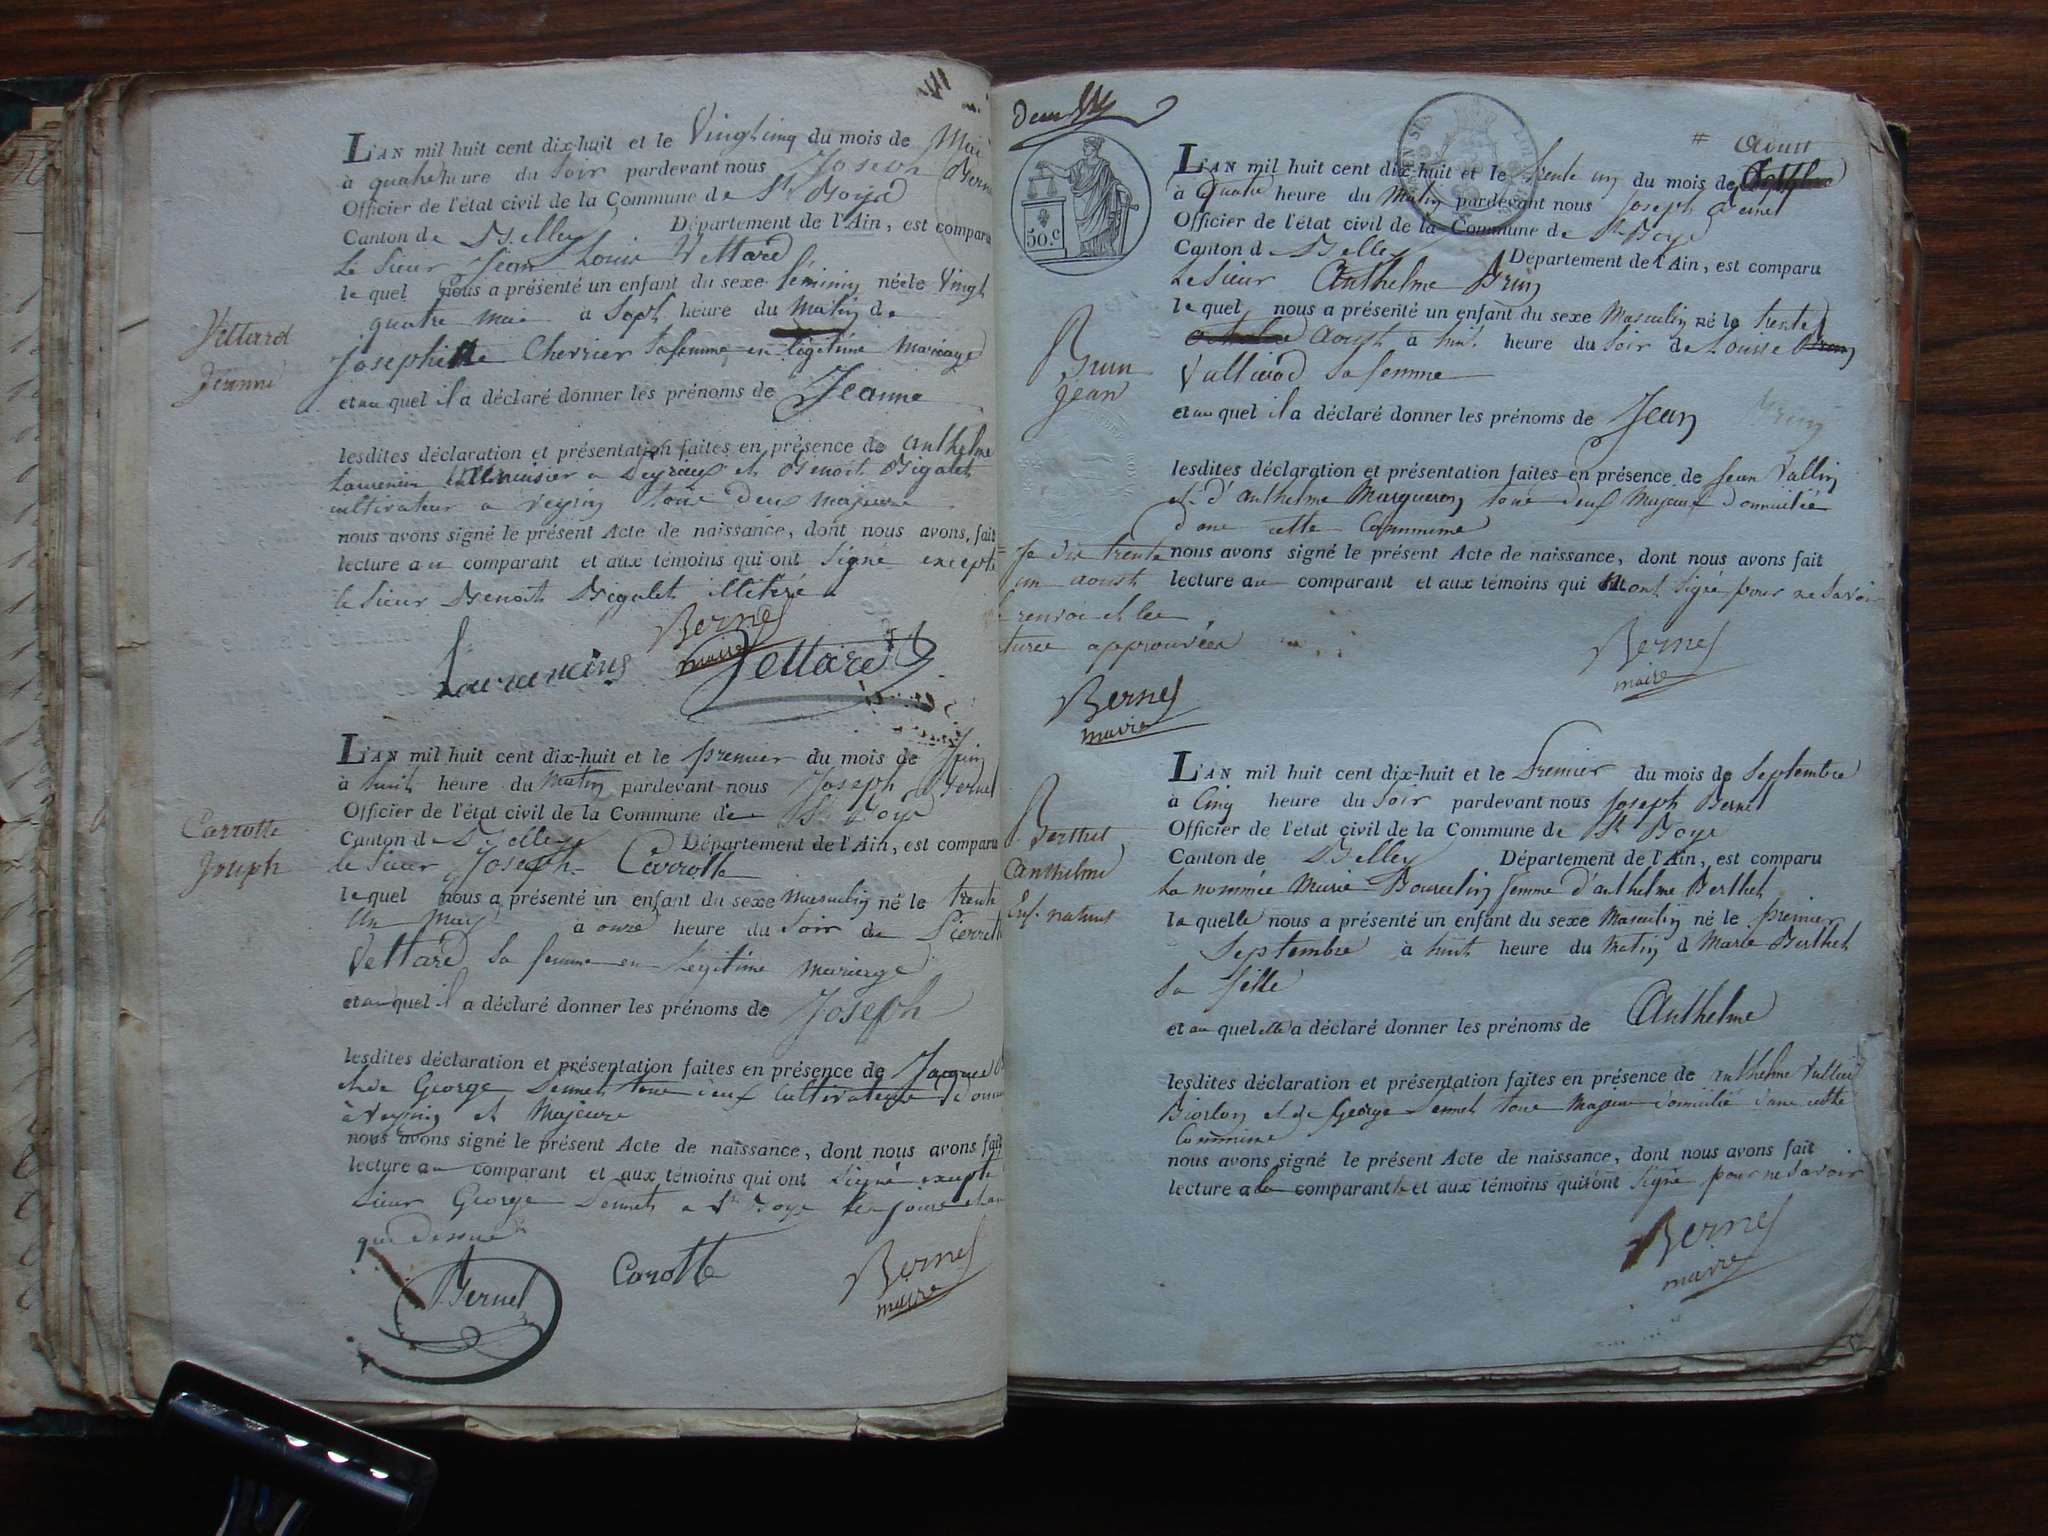 L'AN mil huit cent dix-huit et le Vingt cinq du mois de Mai
à quatre heure du Soir pardevant nous Joseph Bernel
Officier de l'état civil de la Commune de St Boys
Canton de Belley Département de l'Ain, est comparu
Le Sieur Jean Louis Vettard
le quel nous a présenté un enfant du sexe féminin né le Vingt
quatre mai à Sept heure du Matin de
Vettard
Jeanne
Josephine Cherrier Sa femme en légitime Mariage
et au quel il a déclaré donner les prénoms de Jeanne
lesdites déclaration et présentation faites en présence de Anthelme
Laurencin Menuisier a et Benoit Bigalet
cultivateur a Veyrin tous deux majeurs
nous avons signé le présent Acte de naissance, dont nous avons, fait
lecture au comparant et aux témoins qui ont Signé excepté
le Sieur Benoit Bigalet illitéré
Bernel
maire
Laurencin Vettard
L'AN mil huit cent dix-huit et le premier du mois de Juin
à huit heure du Matin pardevant nous Joseph Bernel
Officier de l'état civil de la Commune de St Boys
Canton de Belley Département de l'Ain, est comparu
Carrotte
Joseph
le Sieur Joseph Carrotte
le quel nous a présenté un enfant du sexe Masculin né le trente
un May à onze heure du Soir de Pierrette
Vettard Sa femme en légitime mariage
et au quel il a déclaré donner les prénoms de Joseph
lesdites déclaration et présentation faites en présence de Jacques
et de George Semet tous deux Cultivateurs
à Veyrin et Majeurs
nous avons signé le présent Acte de naissance, dont nous avons fait
lecture au comparant et aux témoins qui ont Signé excepté
Sieur George Semet a St Boys les jours et an
que dessus
Bernel Carotte Bernel
maire
50.c
Aoust
L'AN mil huit cent dix-huit et le trente un du mois de
à quatre heure du Matin pardevant nous Joseph Bernel
Officier de l'état civil de la Commune de St Boys
Canton d Belley Département de l'Ain, est comparu
Le Sieur Anthelme Brun
le quel nous a présenté un enfant du sexe Masculin né le trente
Aoust à huit heure du Soir de Louise
Brun
Jean
Vallierod Sa femme
et au quel il a déclaré donner les prénoms de Jean
lesdites déclaration et présentation faites en présence de Jean Vallin
et d'anthelme Margueron tous deux Majeurs Domicilié
dans cette Commune
nous avons signé le présent Acte de naissance, dont nous avons fait
lecture au comparant et aux témoins qui n'ont Signé pour ne Savoir
= Je dis trente
un aoust
renvoi et les
approuvées
Bernel
maire
Bernel
maire
L'AN mil huit cent dix-huit et le Premier du mois de Septembre
à Cinq heure du Soir pardevant nous Joseph Bernel
Officier de l'état civil de la Commune de St Boys
Canton de Belley Département de l'Ain, est comparu
Berthet
Anthelme
Enf. naturel
La nommée Marie Bourcelin femme d'anthelme Berthet
la quelle nous a présenté un enfant du sexe Masculin né le premier
Septembre à huit heure du Matin d Marie Berthet
Sa fille
et au quel elle a déclaré donner les prénoms de Anthelme
lesdites déclaration et présentation faites en présence de Anthelme
et de George Semet tous Majeurs domicilié dans cette
Commune
nous avons signé le présent Acte de naissance, dont nous avons fait
lecture a la comparante et aux témoins qui n'ont Signé pour ne Savoir
Bernel
maire